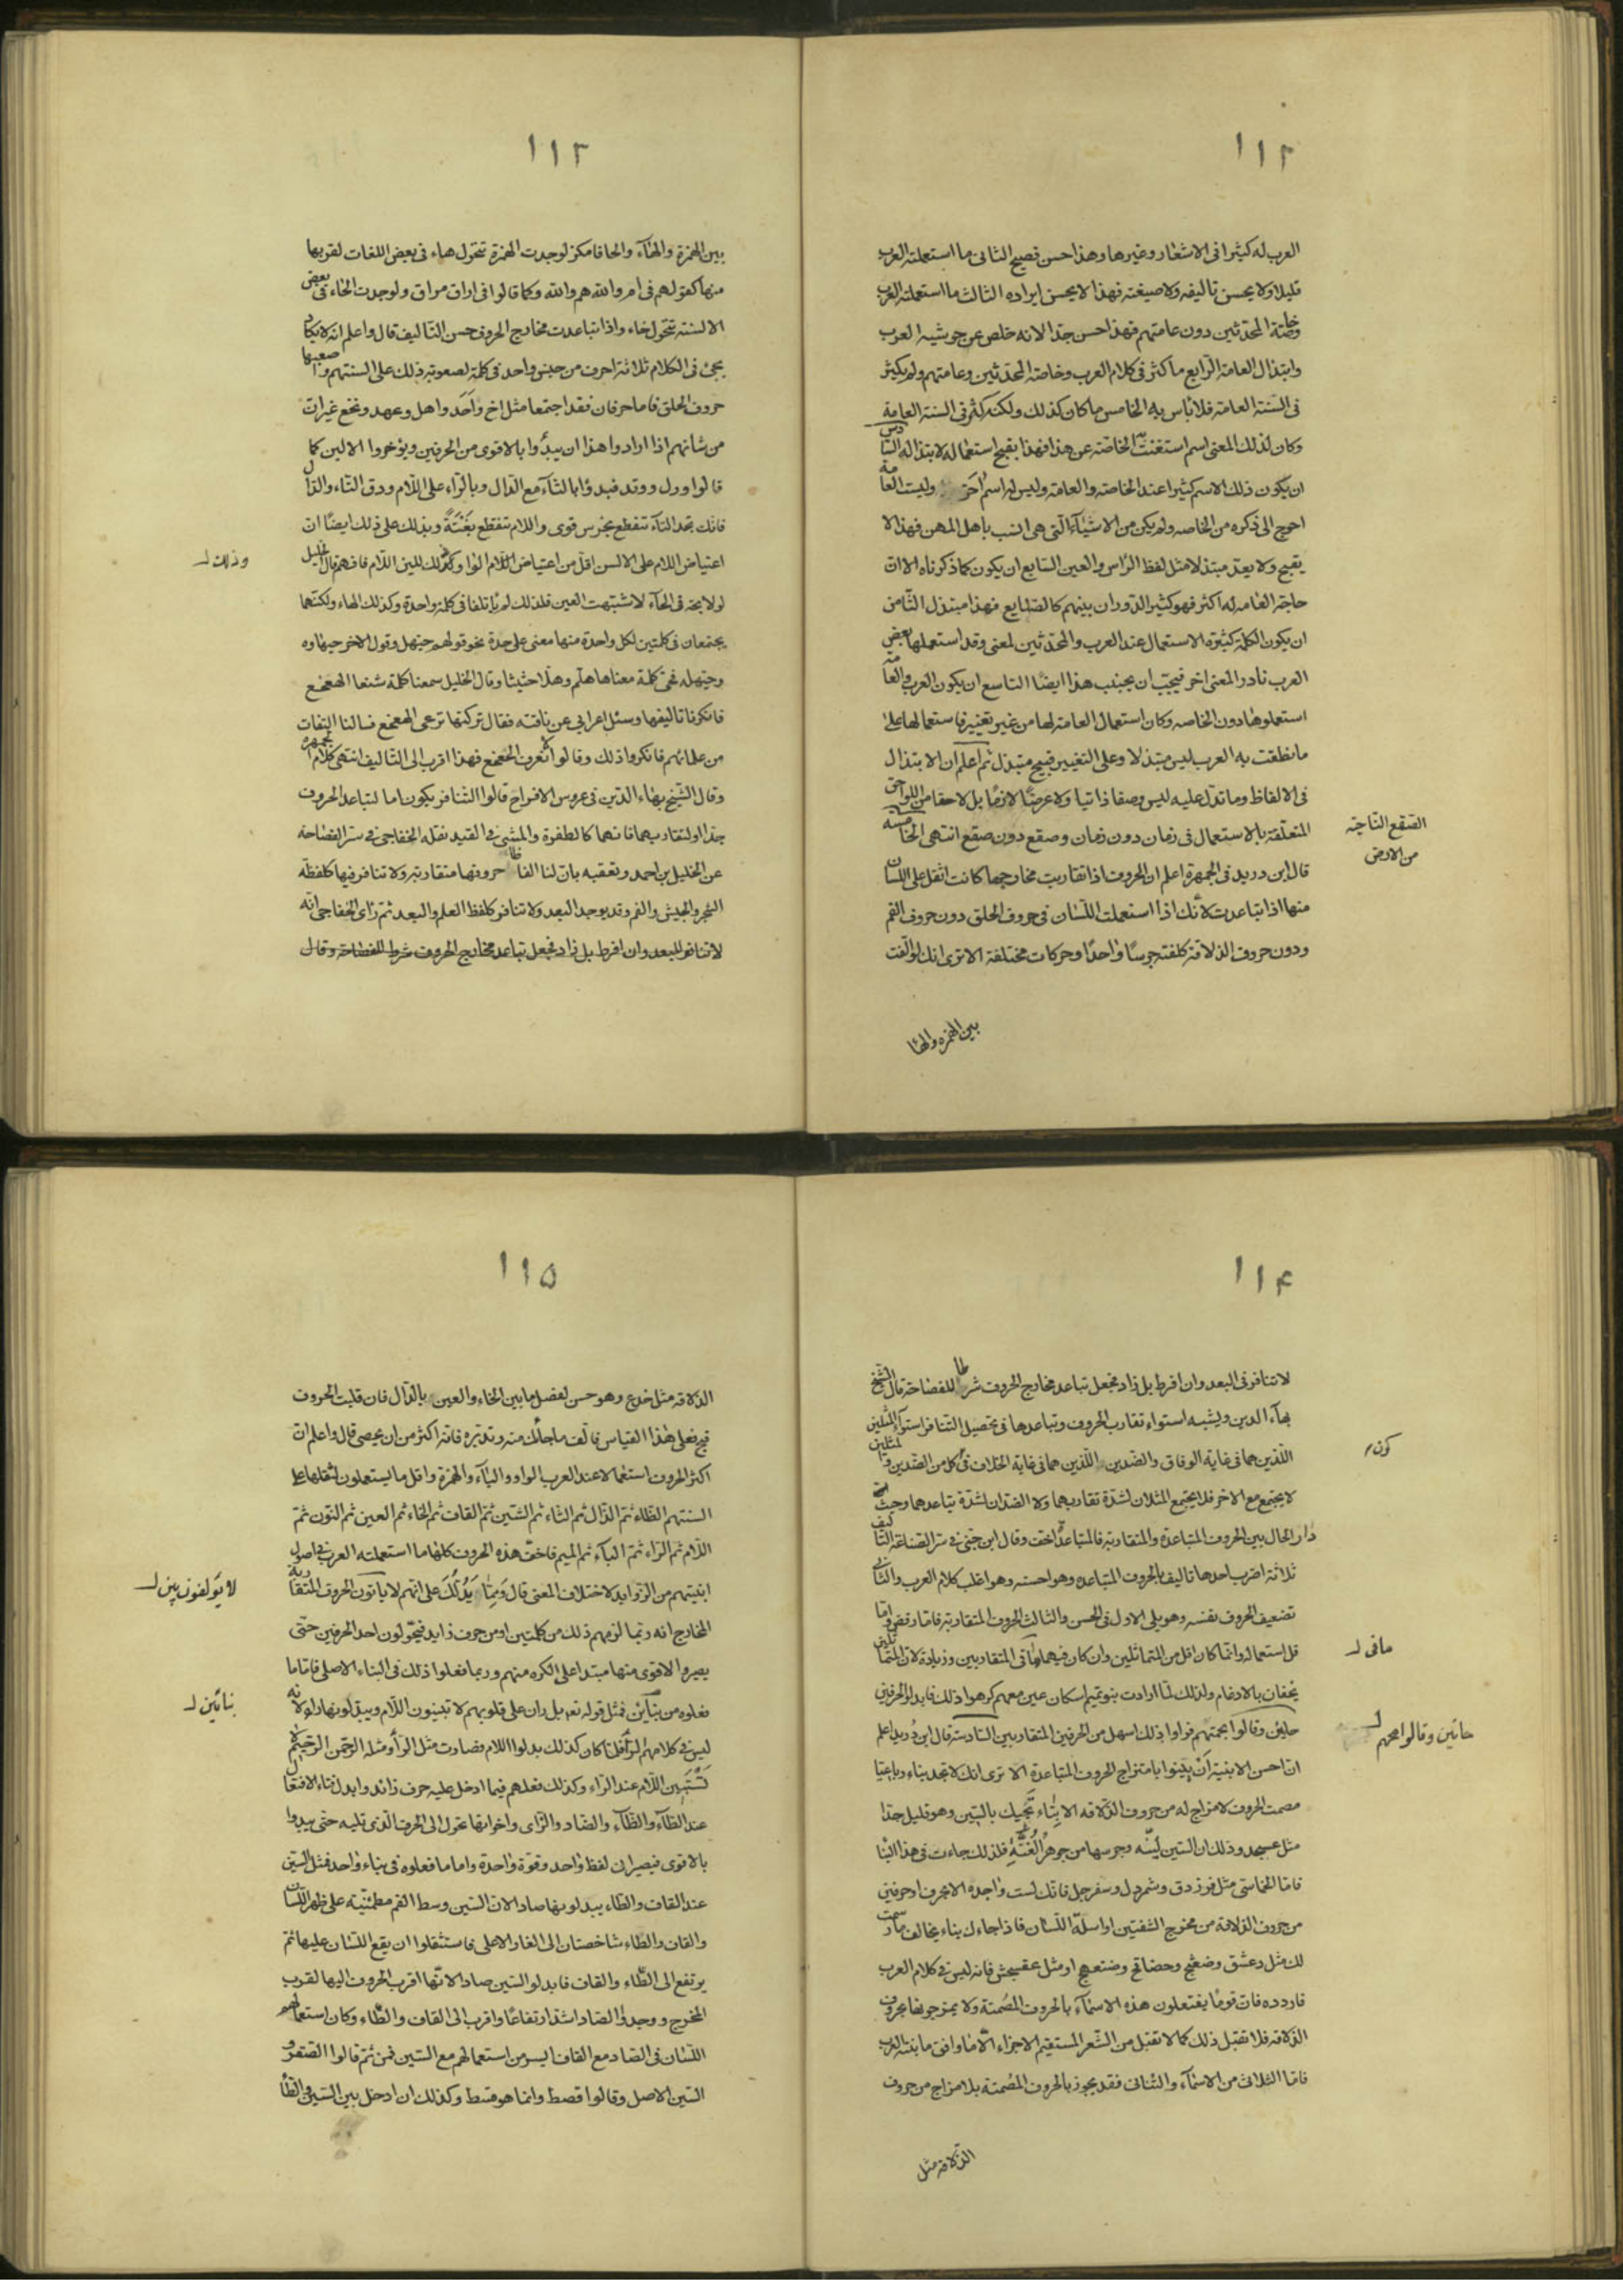 ١١٢
العرب له كثيرا فى الاشعار وغيرها وهذا حسن فصيح الثانى ما استعملته العرب
قليلا ولا يحسن تاليفه ولا صيغته فهذا لا يحسن ايراده الثالث ما استعملته العرب
وخاصة المحدثين دون عامتهم فهذا حسن جدا لانه خلص عن حوشيه العرب
وابتذال العامة الرابع ما كثر فى كلام العرب وخاصة المحدثين وعامتهم ولم يكثر
فى السنة العامة فلا بأس به الخامس ما كان كذلك ولكنه كثر فى السنة العامة
وكان لذلك المعنى اسم استغنت به الخاصة عن هذا فهذا يقبح استعماله لابتذاله السادس
ان يكون ذلك الاسم كثيرا عند الخاصة والعامة وليس له اسم آخر وليست العامة
احوج الى ذكره من الخاصه ولم يكن من الاشياء التى هى انسب باهل المهن فهذا لا
يقبح ولا يعد مبتذلا مثل لفظ الرأس والعين السابع ان يكون كما ذكرناه الا ان
حاجة العامه له اكثر فهو كثير الدوران بينهم كالصنايع فهذا مبتذل الثامن
ان يكون الكلمة كثيرة الاستعمال عند العرب والمحدثين لمعنى وقد استعملها بعض
العرب نادرا لمعنى اخر فيجب ان يجتنب هذا ايضا التاسع ان يكون العرب والعامة
استعملوها دون الخاصه وكان استعمال العامة لها من غير تغيير فاستعمالها على
ما نطقت به العرب ليس مبتذلا وعلى التغيير قبيح مبتذل ثم اعلم ان الابتذال
فى الالفاظ وما تدل عليه ليس وصفا ذاتيا ولا عرضا لازما بل لاحقا من اللواحق
المتعلقة بالاستعمال فى زمان دون زمان وصقع دون صقع انتهى الخامسه
الصقع الناحية
من الارض
قال ابن دريد فى الجمهرة اعلم ان الحروف اذا تقاربت مخارجها كانت اثقل على اللسان
منها اذا تباعدت لأنك اذا استعملت اللسان فى حروف الحلق دون حروف الفم
ودون حروف الذلاقة كلفته جرسا واحدا وحركات مختلفة الا ترى انك لو الفت
بين الهمزه والهاء
١١٣
بين الهمزة والهاء والحا فامكن لوجدت الهمزة تتحول هاء فى بعض اللغات لقربها
منها كقولهم فى ام والله هم والله وكما قالوا فى اراق هراق ولوجدت الحاء فى بعض
الالسنة تتحول خاء واذا تباعدت مخارج الحروف حسن التاليف قال واعلم انه لا يكاد
يجئ فى الكلام ثلاثة احرف من جنس واحد فى كلمة لصعوبة ذلك على السنتهم واصعبها
حروف الحلق فاما حرفان فقد اجتمعا مثل اخ واحد واهل وعهد ونخع غير ان
من شأنهم اذا ارادوا هذا ان يبدؤا بالاقوى من الحرفين ويؤخروا الالين كما
قالوا ورل ووتد فبدؤا بالتاء مع الدال وبالراء على اللام وذق التاء والدال
فانك تجد التاء تنقطع بجرس قوى واللام تنقطع بغنة ويدلك على ذلك ايضا ان
اعتياص اللام على الالسن اقل من اعتياص الراء وكذلك للين اللام فافهم قال الخليل
وذلك
لولا بحة فى الحاء لاشتبهت العين فلذلك لم يأتلفا فى كلمة واحدة وكذلك الهاء ولكنهما
يجتمعان فى كلمتين لكل واحدة منها معنى على حدة نحو قولهم حيهل وقول الاخر حيهاوه
وحيهله فحى كلمة معناها هلم وهلا حثيثا وقال الخليل سمعنا كلمة شنعا الهعخع
فانكرنا تاليفها وسئل اعرابى عن ناقته فقال تركتها ترعى الهعخع فسالنا الثقات
من علمائهم فانكروا ذلك وقالوا نعرف الخعخع فهذا اقرب الى التاليف انتهى كلام الجمهره
وقال الشيخ بهاء الدين فى عروس الافراح قالوا التنافر يكون اما لتباعد الحروف
جدا او لتقاربها فانهما كالطفرة والمشى فى القيد نقله الخفاجى فى سر الفصاحة
عن الخليل بن احمد وتعقبه بان لنا الفاظا حروفها متقاربة ولا تنافر فيها كلفظة
الشجر والجيش والفم وقد يوجد البعد ولا تنافر كلفظ العلم والبعد ثم رأى الخفاجى انه
لا تنافر للبعد وان افرط بل زاد فجعل تباعد مخارج الحروف شرط للفصاحة وقال
١١٤
لا تنافر فى البعد وان افرط بل زاد فجعل تباعد مخارج الحروف شرطا للفصاحة قال الشيخ
بهاء الدين ويشبه استواء تقارب الحروف وتباعدها فى تحصيل التنافر استواء المثلين
اللذين هما فى غاية الوفاق والضدين اللذين هما فى غاية الخلاف فى كل من الضدين والمثلين
كون
لا يجتمع مع الاخر فلا يجتمع المثلان لشدة تقاربهما ولا الضدان لشدة تباعدهما وحيث
دار الحال بين الحروف المتباعدة والمتقاربة فالمتباعدة اخف وقال ابن جنى فى سر الصناعة التاليف
ثلاثة اضرب احدها تاليف الحروف المتباعده وهو احسنه وهو اغلب كلام العرب والثانى
تضعيف الحروف نفسه وهو يلى الاول فى الحسن والثالث الحروف المتقاربة فاما رفض واما
قل استعماله وانما كان اقل من المتماثلين وان كان فيهما ما فى المتقاربين وزيادة لان المتماثلين
ما فى
يخفان بالادغام ولذلك لما ارادت بنو تميم اسكان عين معهم كرهوا ذلك فابدلوا الحرفين
حائين وقالوا محهم فراوا ذلك اسهل من الحرفين المتقاربين السادسة قال ابن دريد اعلم
حائين وقالوا محهم
ان احسن الابنية ان يبنوا بامتزاج الحروف المتباعدة الا ترى انك لا تجد بناء رباعيا
مصمت الحروف لا مزاج له من حروف الذلاقه الا بناء يجيك بالسين وهو قليل جدا
مثل عسجد وذلك ان السين لينه وجرسها من جوهر الغنة فلذلك جاءت فى هذا البنا
فاما الخماسى مثل فرزدق وشمردل وسفرجل فانك لست واجده الا بحرف او حرفين
من حروف الذلاقة من مخرج الشفتين او اسلة اللسان فاذا جاءك بناء يخالف ما رسمت
لك مثل دعشق وضغثج وحضافج وضفعهج او مثل عقجش فانه ليس فى كلام العرب
فاردده فان قوما يفتعلون هذه الاسماء بالحروف المصمتة ولا يمزجونها بحروف
الذلاقه فلا تقبل ذلك كما لا تقبل من الشعر المستقيم الاجزاء الا ما وافق ما بنته العرب
فاما الثلاثى من الاسماء والثنائى فقد يجوز بالحروف المصمتة بلا مزاج من حروف
الذلاقه مثل
١١٥
الذلاقه مثل خدع وهو حسن لفصل ما بين الخاء والعين بالدال فان قلبت الحروف
قبح فعلى هذا القياس فالف ما جاءك منه وتدبره فانه اكثر من ان يحصى قال واعلم ان
اكثر الحروف استعمالا عند العرب الواو والياء والهمزة واقل ما يستعملون لثقلها على
السنتهم الظاء ثم الذال ثم الثاء ثم الشين ثم القاف ثم الخاء ثم العين ثم النون ثم
اللام ثم الراء ثم الباء ثم الميم فاخف هذه الحروف كلها ما استعملته العرب فى اصول
ابنيتهم من الزوايد لاختلاف المعنى قال ومما يدلك على انهم لا يأتون الحروف المتقاربة
لا يؤلفون بين
المخارج انه ربما لزمهم ذلك من كلمتين او من حرف زايد فيحولون احد الحرفين حتى
يصيروا الاقوى منها مبتدا على الكره منهم وربما فعلوا ذلك فى البناء الاصلى فاما ما
فعلوه من بنائين فمثل قوله تعم بل ران على قلوبهم لا تبينون اللام ويبدلونها راء لانه
بنائين
ليس فى كلامهم لر فلما كان كذلك بدلوا اللام فصارت مثل الرأ ومثله الرحمن الرحيم لا
تستبين اللام عند الراء وكذلك فعلهم فيما ادخل عليه حرف زائد وابدل فتاء الافتعال
عند الطاء والظاء والضاد والزاى واخواتها تحول الى الحرف الذى تليه حتى يبدوا
بالاقوى فيصيرا فى لفظ واحد وقوة واحدة واما ما فعلوه فى بناء واحد فمثل السين
عند القاف والطاء يبدلونها صادا لان السين وسط الفم مطمئنيه على ظهر اللسان
والقاف والطاء شاخصتان الى الغار الاعلى فاستثقلوا ان يقع اللسان عليها ثم
يرتفع الى الطاء والقاف فابدلوا السين صادا لانها اقرب الحروف اليها لقرب
المخرج ووجدوا الصاد اشد ارتفاعا واقرب الى القاف والطاء وكان استعمالهم
اللسان فى الصاد مع القاف ايسر من استعمالهم مع السين فمن ثم قالوا الصقر و
السين الاصل وقالوا قصط وانما هو قسط وكذلك ان ادخل بين السين والطأ